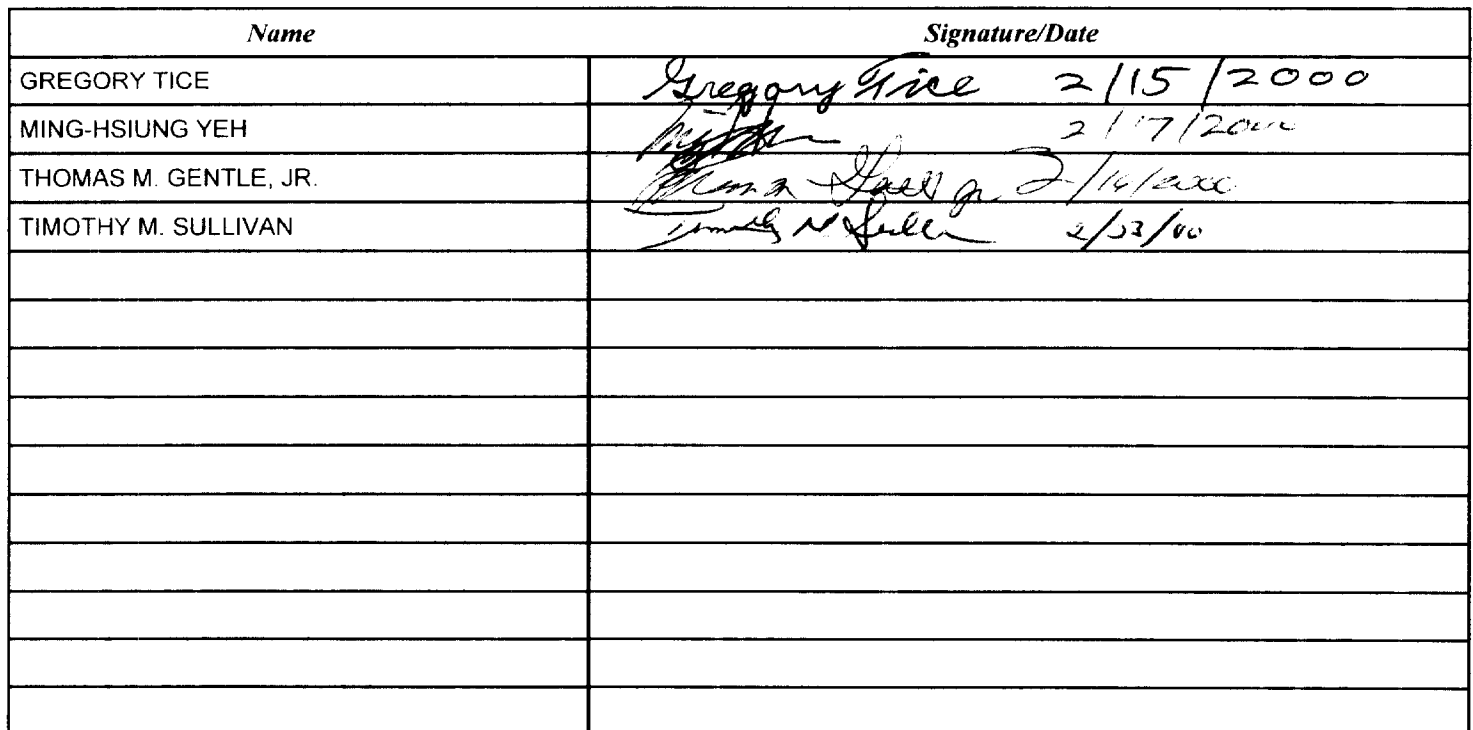 Name Signature/Date
GREGORY TICE Gregory Tice 2/15/2000
MING-HSIUNG YEH 2/17/2000
THOMAS M. GENTLE, JR. 2/16/2000
TIMOTHY M. SULLIVAN Timothy M Sulli